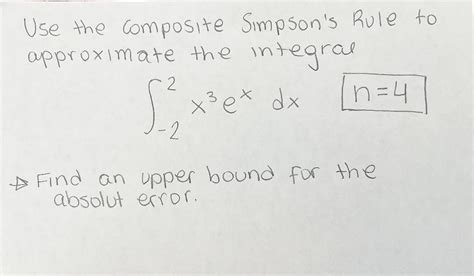 Use the composite Simpson's Rule to
approximate the integral
∫₋₂² x³eˣ dx n=4
→ Find an upper bound for the
absolut error.